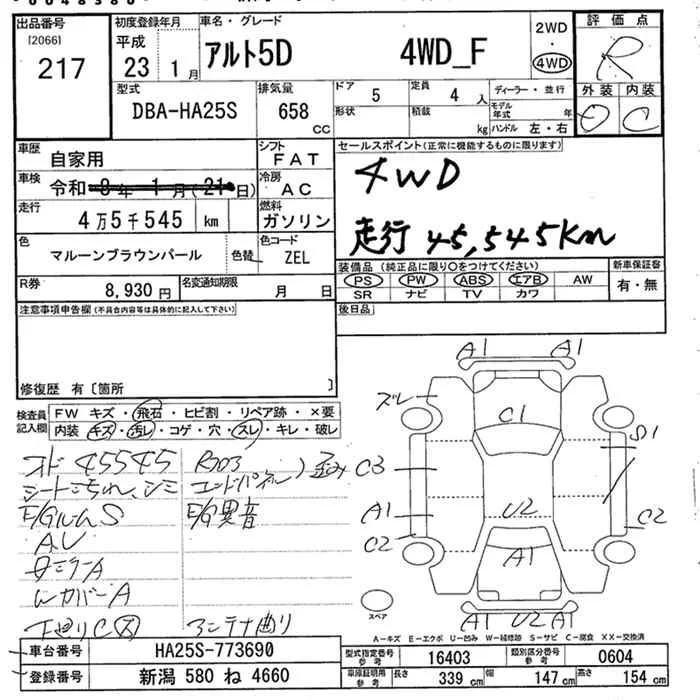 出品番号
[2066]
217
初度登録年月
平成
23 1月
車名・グレード
アルト5D 4WD_F
2WD
・
4WD
評価点
R
外装 内装
D C
型式
DBA-HA25S
排気量
658
CC
ドア 5
定員 4 人
ディーラー・並行
形状
積載 kg
モデル年式 年
ハンドル 左・右
車歴
自家用
シフト
FAT
車検
冷房
AC
走行
4万5千545 km
燃料
ガソリン
セールスポイント(正常に機能するものに限ります)
4WD
走行 45,545km
色
マルーンブラウンパール
色替
色コード
ZEL
装備品 (純正品に限り○をつけてください)
PS PW ABS エアB AW
SR ナビ TV カワ
新車保証書
有・無
R券
8,930円
名変通知期限
月 日
後日品
注意事項申告欄(不具合内容等は具体的に記入して下さい)
修復歴 有〔箇所 〕
検査員
記入欄
FW キズ・飛石・ヒビ割・リペア跡・×要
内装 キズ・汚レ・コゲ・穴・スレ・キレ・破レ
オド 45545
シートこちれ、シミ
E/GルームS
E/G異音
AU
下廻りC
アンテナ曲り
A1 A1
ズレ
C1
S1
C3
A1
U2
C2
C2
A1
A1 U2 A1
スペア
A-キズ E-エクボ U-凹み W-補修跡 S-サビ C-腐食 XX-交換済
車台番号
HA25S-773690
登録番号
新潟 580 ね 4660
型式指定番号
参考
16403
類別区分番号
参考
0604
車庫証明用
参考
長さ 339cm
幅 147cm
高さ 154cm